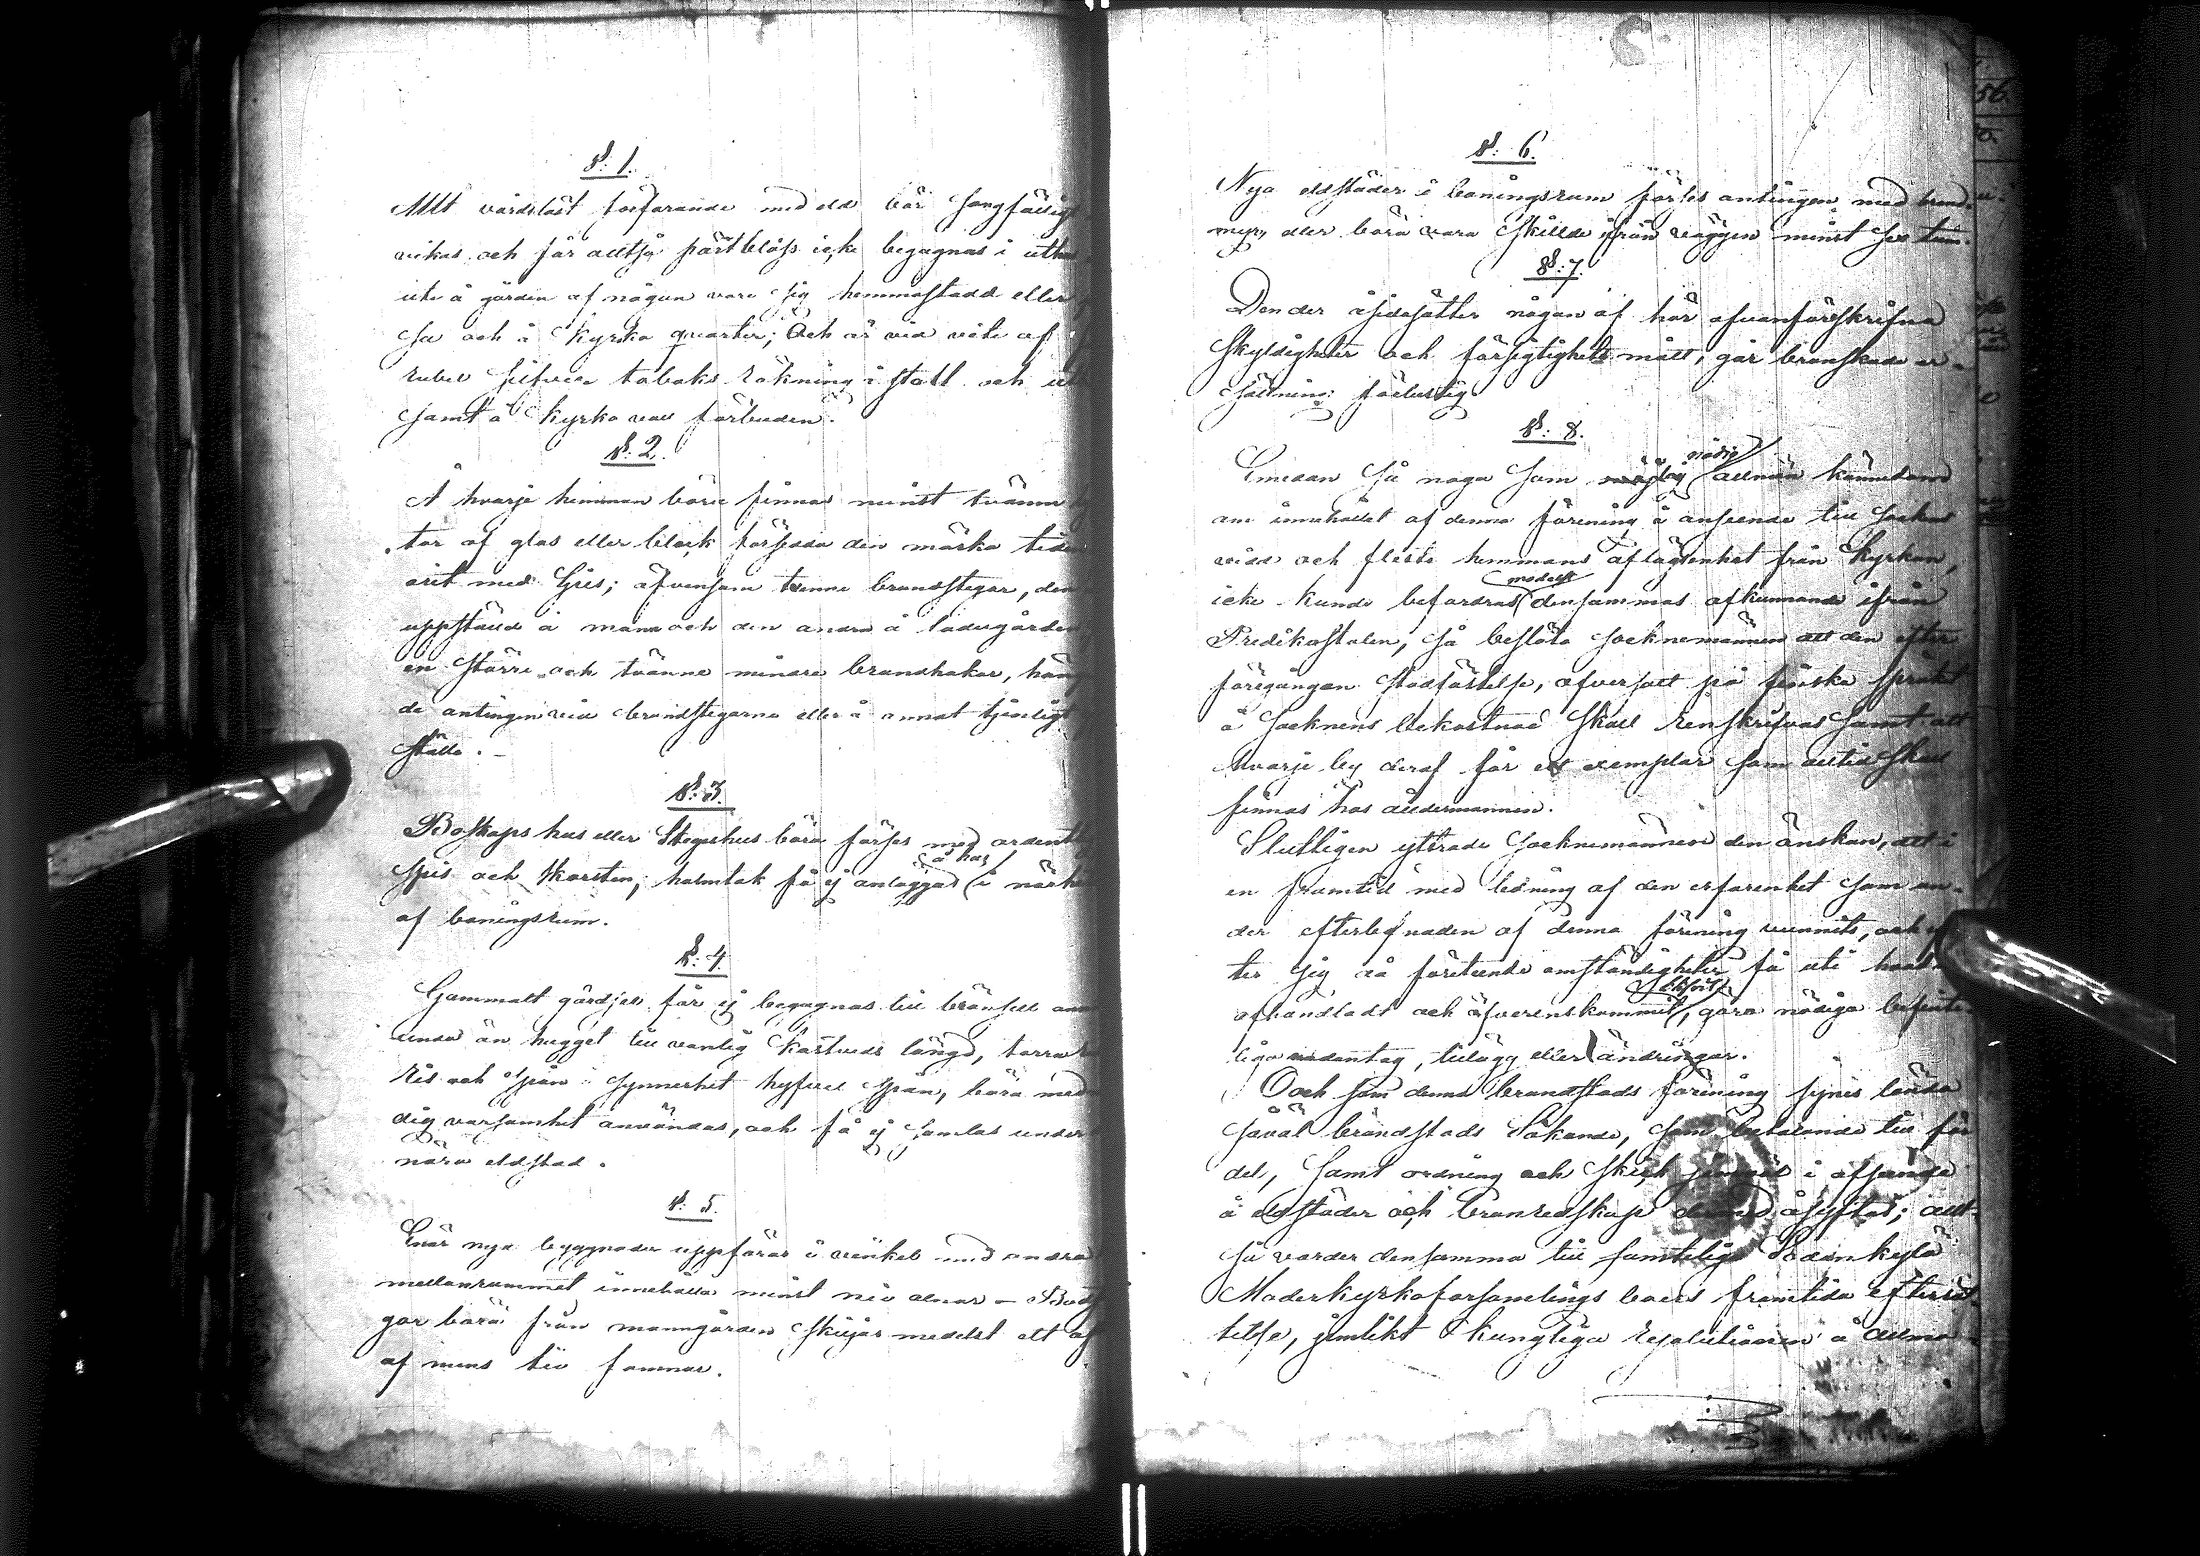 §. 1.
Allt vårdslöst förfarande med eld bör sorgfälligt
vikas och får alltså pärtbloss icke begagnas i uthus
ute å gården af någon vare sig hemmastadd eller
sa och å Kyrko quarter; Och är vid vite af
rubel silfver tobaks rökning i stall och ut
samt å kyrko vall förbuden.
§. 2.
Å hvarje hemman böra finnas minst tvänne
tor af glas eller bläck försedda den mörka tiden
året med ljus; äfvensom tvenne brandstegar, den
uppställd å man och den andra å ladugården
en större och tvänne mindre brandhakar, häng
de antingen vid brandstegarne eller å annat tjenligt
ställe.
§. 3.
Boskaps hus eller Stegerhus böra förses med ordentl
spis och skorsten; halmtak få ej anläggas å hus i närhe
af boningsrum.
§. 4.
Gammalt gärdsel får ej begagnas till bränsle ann
unda än hugget till vanlig kastveds längd, torra
Ris och spån i synnerhet hyfvel spån, böra med
dig varsamhet användas, och få ej samlas under
nära eldstad.
§. 5.
Enär nya byggnader uppföras i vinkel med andra
mellanrummet innehålla minst nio alnar – Bod
gar böra från manngården skiljas medelst ett af
af mins tio famnar.
§. 6.
Nya eldstäder i boningsrum förses antingen med brand
mur, eller böra vara skillde ifrån väggen minst sex tum.
§. 7.
Den der åsidosätter någon af här ofvanföreskrifna
skyldigheter och försigtighets mått, går brandskade er-
sättning förlustig.
§. 8.
Emedan så noga som nödig allmän kännedom
om innehållet af denna förening å anseende till Socknens
vidd och fleste hemmans aflägsenhet från Kyrkan,
icke kunde befordras medelst densammas afkunnande ifrån
Predikostolen, så beslöto Socknemännen att den efter
föregången stadfästelse, öfversatt på finska språket
å Socknens bekostnad skall renskrifvas samt att
hvarje by deraf får ett exemplar som alltid skall
finnas hos åldermannen.
Slutligen yttrade Socknemännen den önskan, att i
en framtid med ledning af den erfarenhet som un-
der efterlefnaden af denna förening vunnits, och
ter sig då företeende omständigheter få uti
afhandladt och öfverenskommit, göra nödiga befinte-
liga undantag, tillägg eller ändringar.
Och som denna brandstads förening synes lända
såväl brandstads Sökande, som betalande till för
del, samt ordning och skick i afseende
å eldstäder och brandredskap åsyftas; allt-
så varder densamma till samtelige Sodankylä
Moderkyrkoforsamlings boers framtida efterrät
telse, jemlikt Kungliga Resolutionen å allmo